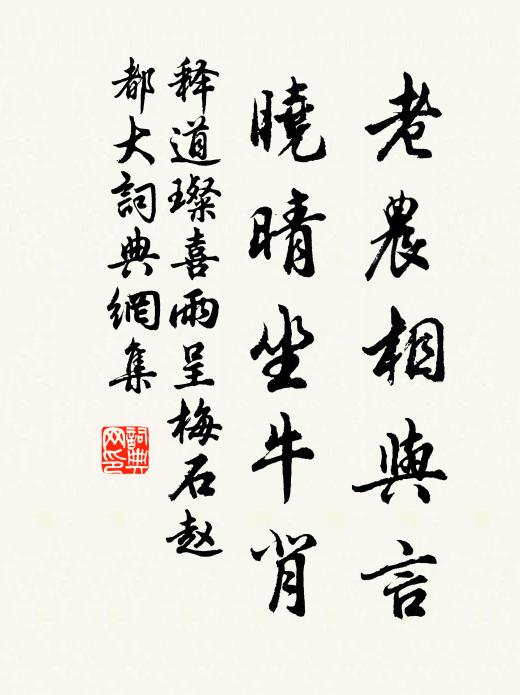 老農相與言
曉晴坐牛背
释道璨喜雨呈梅石赵
都大詞典網集
詞典
网印